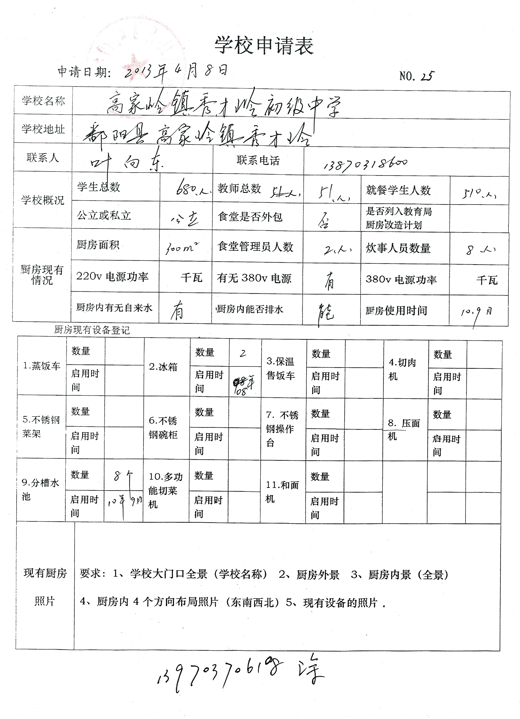 学校申请表
申请日期: 2013年4月8日
NO. 25
学校名称 高家岭镇秀才岭初级中学
学校地址 鄱阳县高家岭镇秀才岭
联系人 叶向东 联系电话 13870318600
学校概况 学生总数 680.人. 教师总数 51.人. 就餐学生人数 510.人.
公立或私立 公立 食堂是否外包 否 是否列入教育局厨房改造计划
厨房现有情况 厨房面积 300m² 食堂管理员人数 2.人. 炊事人员数量 8人
220v 电源功率 千瓦 有无 380v 电源 有 380v 电源功率 千瓦
厨房内有无自来水 有 厨房内能否排水 能 厨房使用时间 10.9月
厨房现有设备登记
1.蒸饭车 数量 2.冰箱 数量 2 3.保温售饭车 数量 4.切肉机 数量
启用时间 启用时间 启用时间 启用时间
5.不锈钢菜架 数量 6.不锈钢碗柜 数量 7.不锈钢操作台 数量 8.压面机 数量
启用时间 启用时间 启用时间 启用时间
9.分槽水池 数量 8个 10.多功能切菜机 数量 11.和面机 数量
启用时间 10年9月 启用时间 启用时间
现有厨房照片 要求: 1、学校大门口全景(学校名称) 2、厨房外景 3、厨房内景(全景)
4、厨房内 4 个方向布局照片(东南西北)5、现有设备的照片.
13970370618 涂